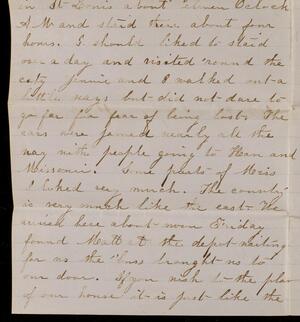 in St Louis about Eleven Oclock
A.M and staid there about four
hours. I should liked to staid
over a day and visited 'round the
city Jennie and I walked out a
little ways but did not dare to
go far for fear of being lost. The
cars were jamed nearly all the
way with people going to Kan and
Missouri. Some parts of Miss
I liked very much. The country
is very much like the east. We
arived here about noon Friday
found Matt at the depot waiting
for us the 'buss brought us to
our door. If you wish to the plan
of our house it is just like the